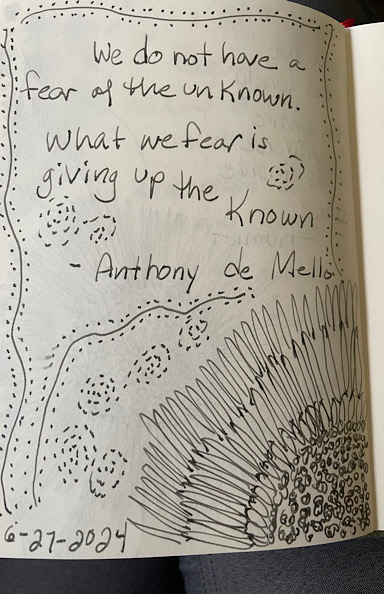 We do not have a
fear of the unKnown.
What we fear is
giving up the Known
- Anthony de Mello
6-27-2024